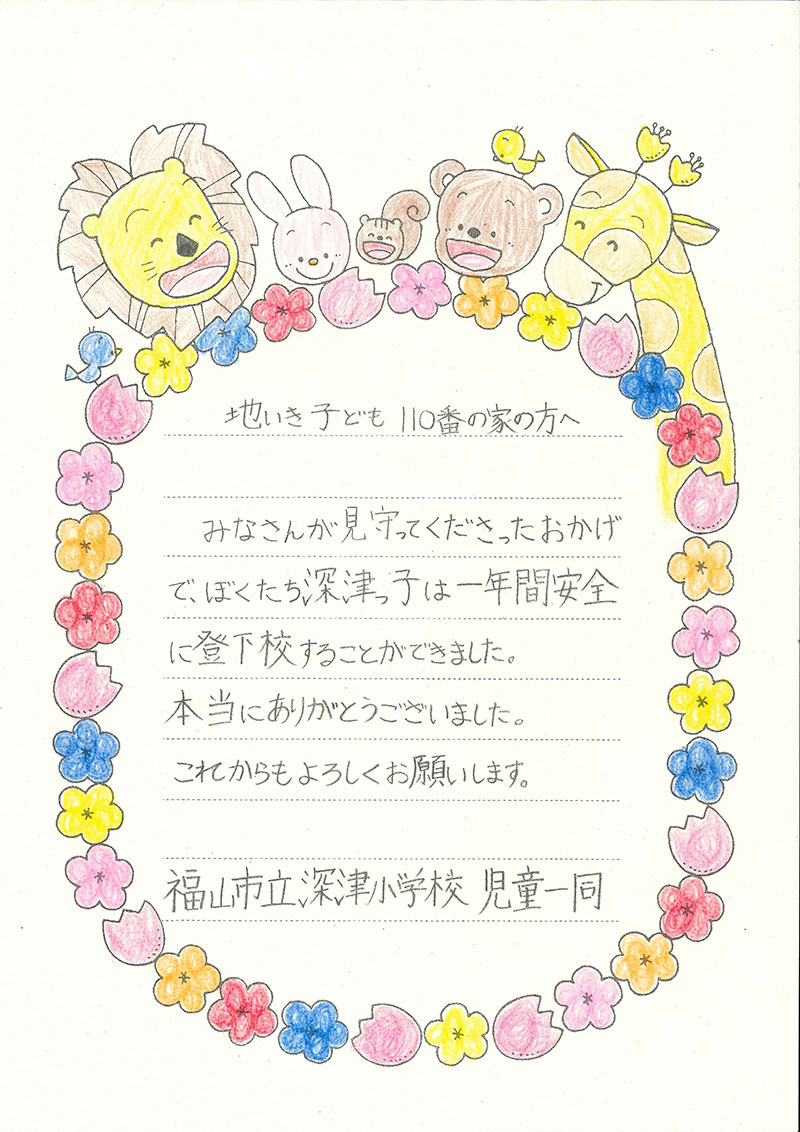 地いき子ども110番の家の方へ
みなさんが見守ってくださったおかげ
で、ぼくたち深津っ子は一年間安全
に登下校することができました。
本当にありがとうございました。
これからもよろしくお願いします。
福山市立深津小学校 児童一同